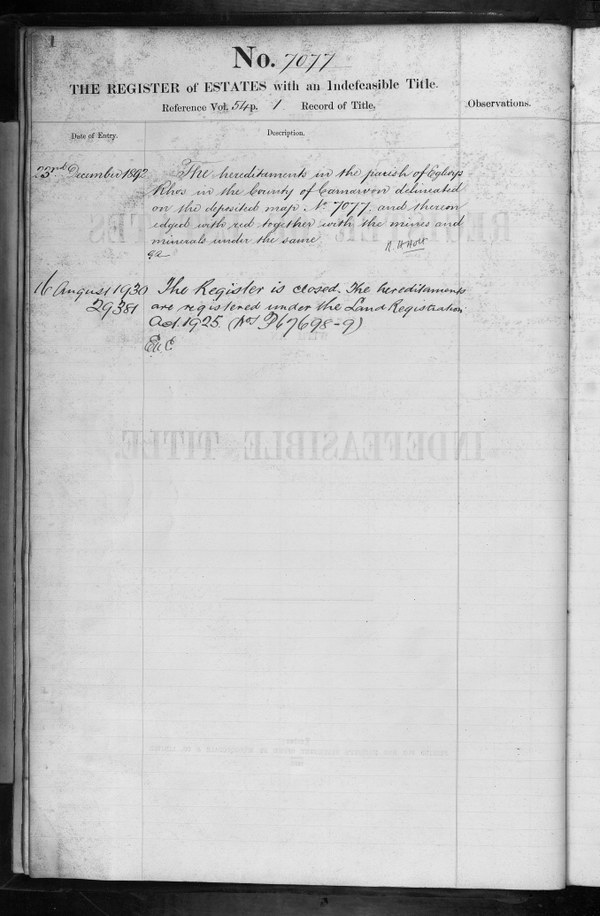 1
No. 7077
THE REGISTER of ESTATES with an Indefeasible Title.
Reference Vol. 54 p. 1 Record of Title.
Observations.
Date of Entry.
Description.
23rd December 1892
The hereditaments in the parish of Eglwys
Rhos in the County of Carnarvon delineated
on the deposited map No 7077, and thereon
edged with red together with the mines and
minerals under the same
R H Holt
16 August 1930
29381
The Register is closed. The hereditaments
are registered under the Land Registration
Act. 1925. (Nos P67698-9)